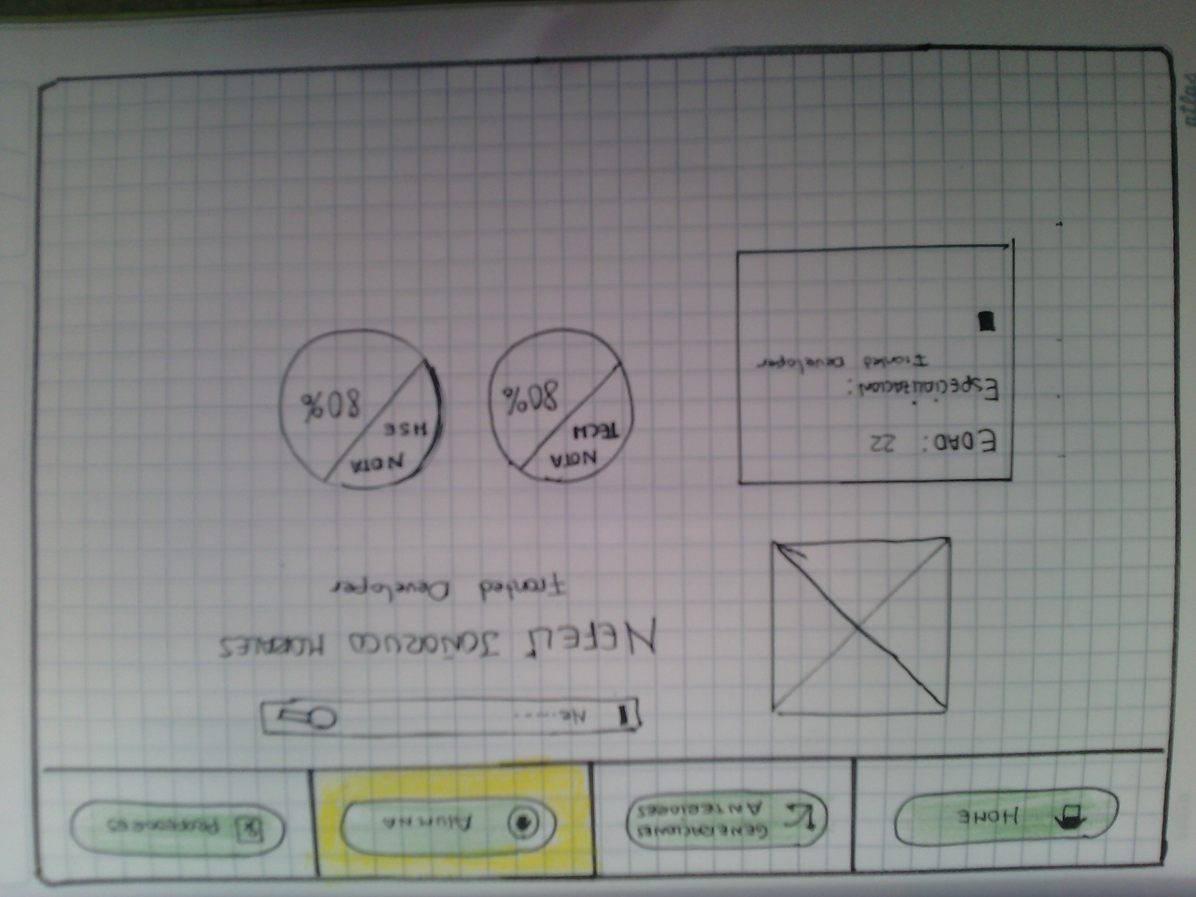 HOME
GENERACIONES
ANTERIORES
ALUMNA
PROFESORES
Ne......
NEFELÍ JOÑORUCO MORALES
Fronted Developer
EDAD: 22
ESPECIALIZACION:
Fronted Developer
NOTA
TECH
80%
NOTA
HSE
80%